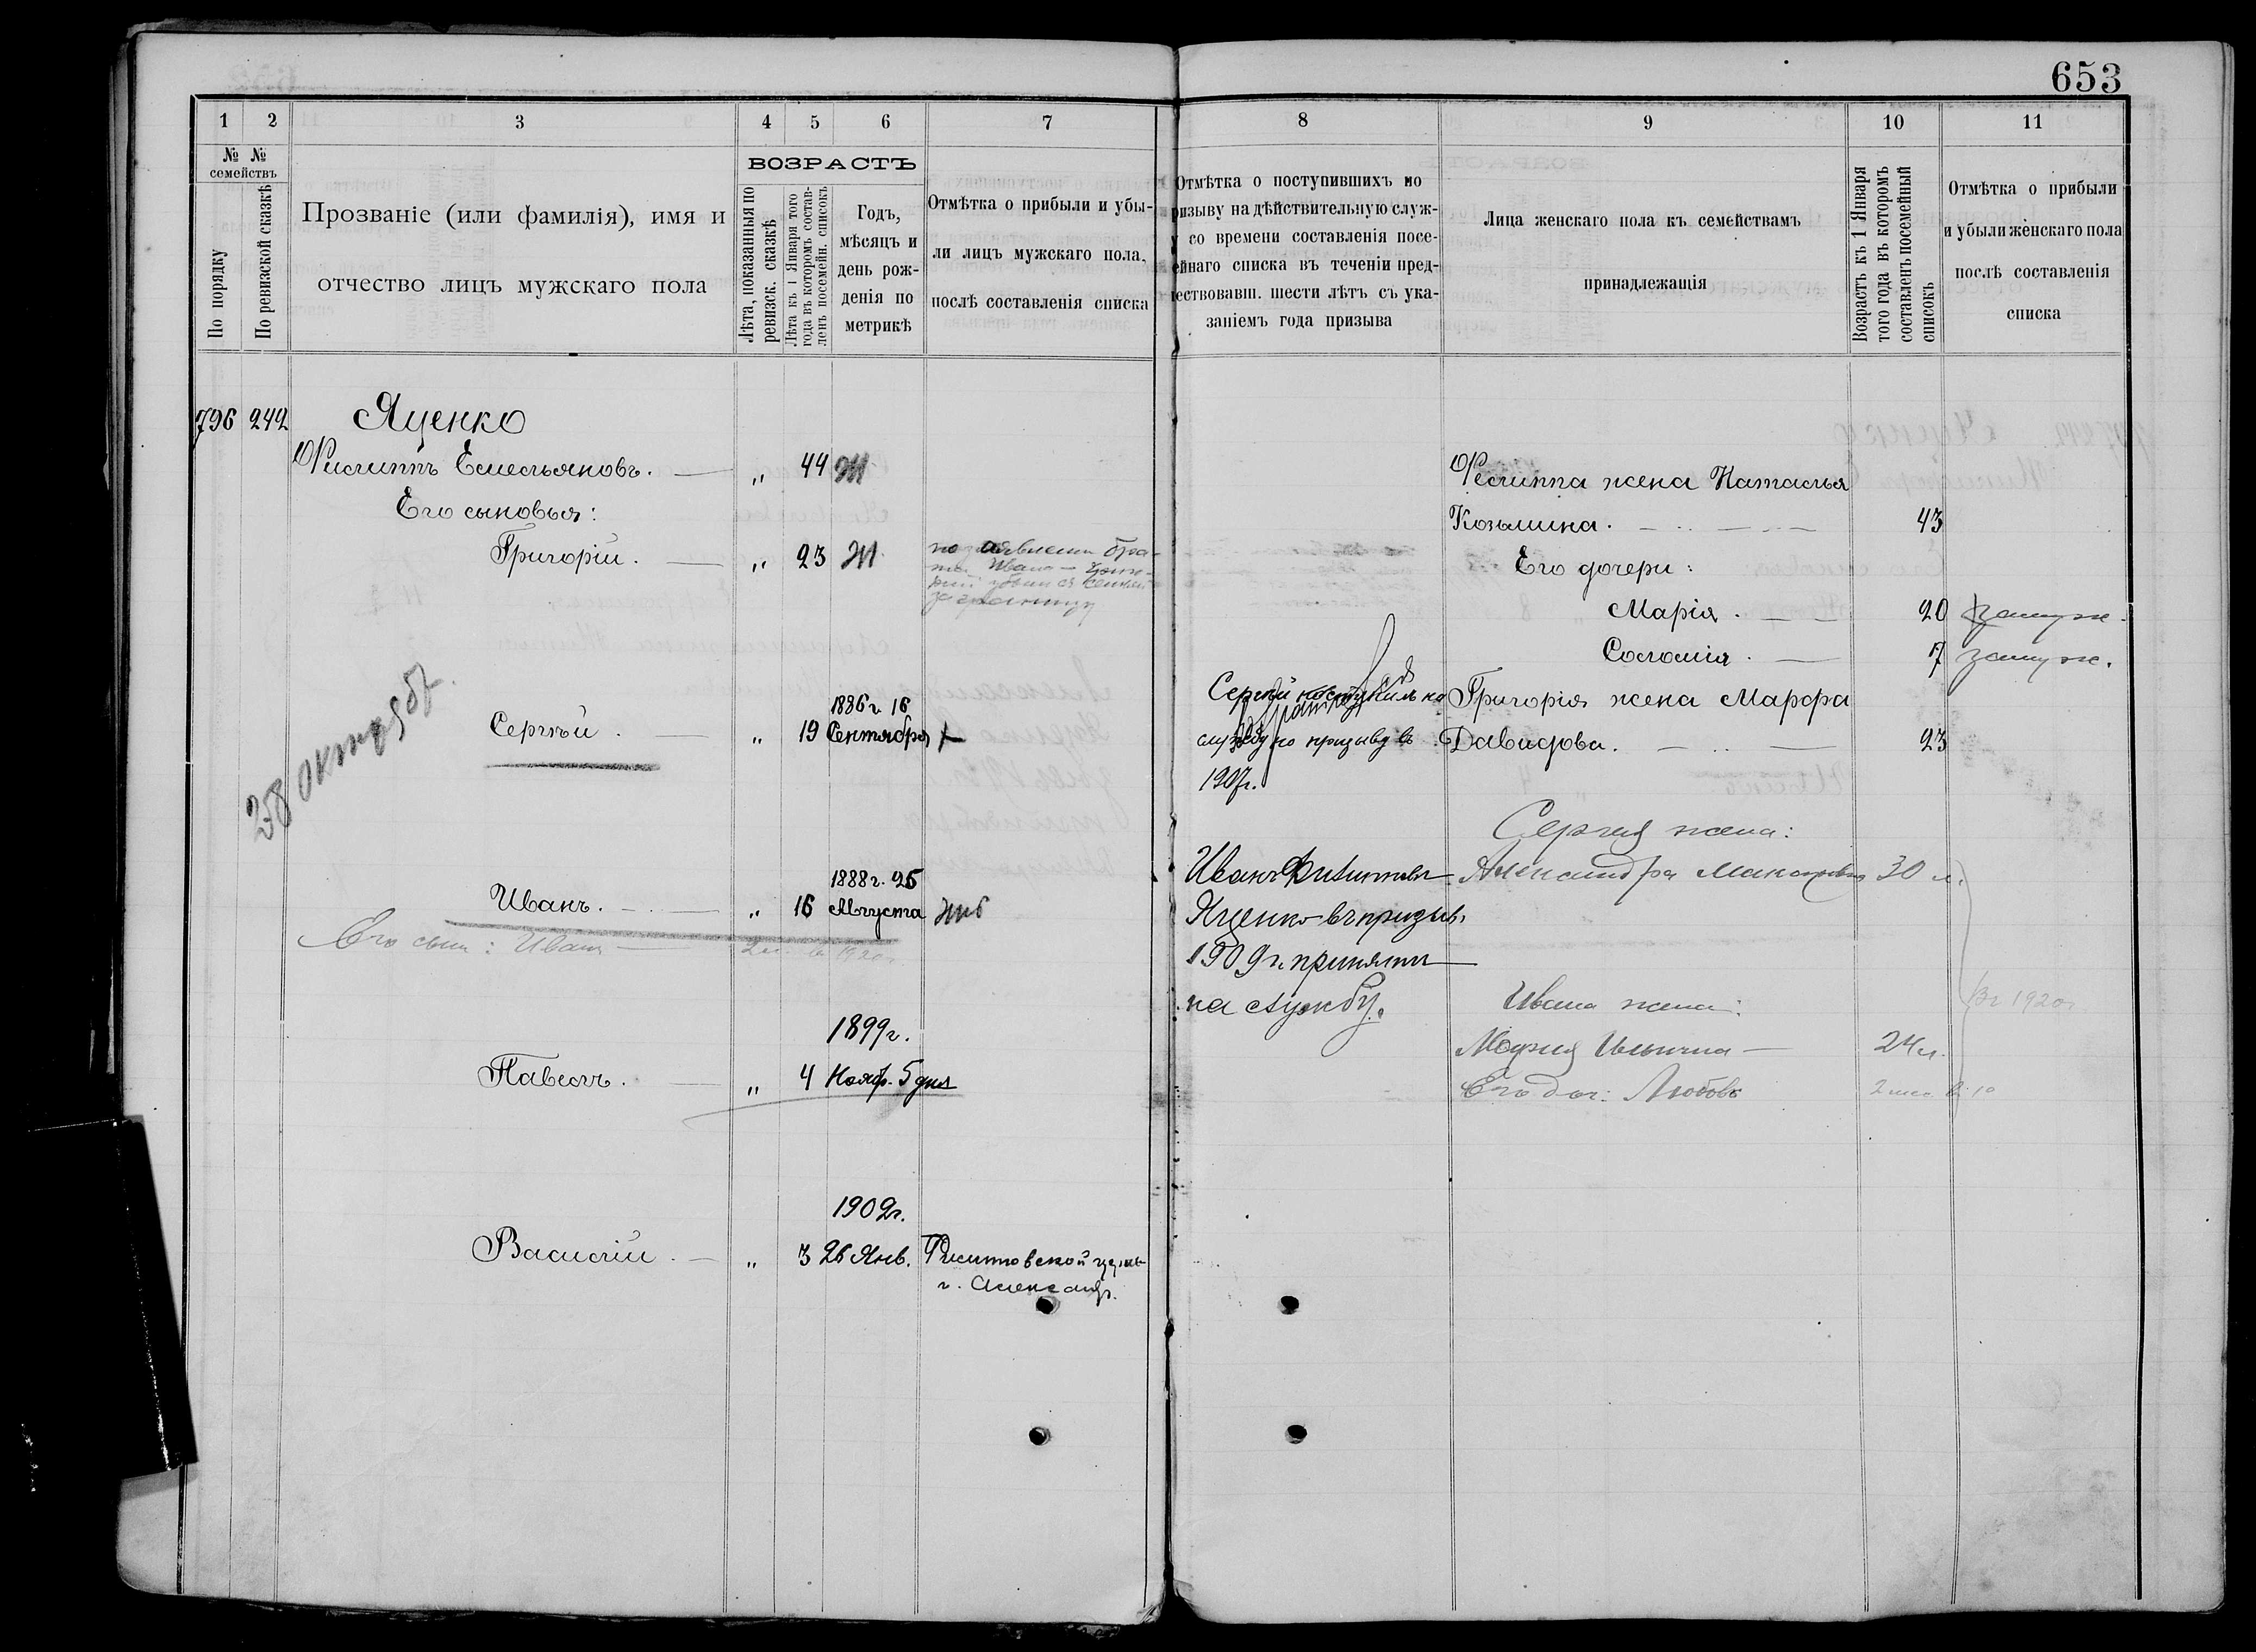 653
1 2 3 4 5 6 7
№ №
семействъ
По порядку
По ревизской сказкѣ
Прозваніе (или фамилія), имя и
отчество лицъ мужскаго пола
ВОЗРАСТЪ
Лѣта, показанныя по
ревизск. сказкѣ
Лѣта къ 1 Января того
года въ которомъ состав-
ленъ посемейн. списокъ
Годъ,
мѣсяцъ и
день рож-
денія по
метрикѣ
Отмѣтка о прибыли и убы-
ли лицъ мужскаго пола,
послѣ составленія списка
796 242 Яценко
Филиппъ Емельяновъ. — „ 44
Его сыновья:
Григорій. — „ 23
за границу
28 октября
1886 г. 16
Сергѣй. — „ 19 Сентября
1888 г. 25
Иванъ. — „ 16 Августа
Его сын: Иван — 2 л. в 1920 г.
1899 г.
Павелъ. — „ 4 Нояб. 5 дня
1902 г.
Василій. — „ 3 26 Янв.
г. Александр.
8 9 10 11
Отмѣтка о поступившихъ по
ризыву на дѣйствительную служ-
у со времени составленія посе-
ейнаго списка въ теченіи пред-
ествовавш. шести лѣтъ съ ука-
заніемъ года призыва
Лица женскаго пола къ семействамъ
принадлежащія
Возрастъ къ 1 Января
того года въ которомъ
составленъ посемейный
списокъ
Отмѣтка о прибыли
и убыли женскаго пола
послѣ составленія
списка
Филиппа жена Наталья
Козьмина. — 43
Его дочери:
Марія. — 20 замуж.
Соломія. — 17 замуж.
Сергѣй поступилъ на
службу по призыву въ
1907 г.
Григорія жена Марфа
Давидова. — 23
Сергея жена:
Александра 30 л.
Иванъ Филиппов
Яценко въ призыв.
1909 г. принятъ
на службу.
Ивана жена:
Мария Ильинична — 24 л.
Его доч: Любовь
В 1920 г.